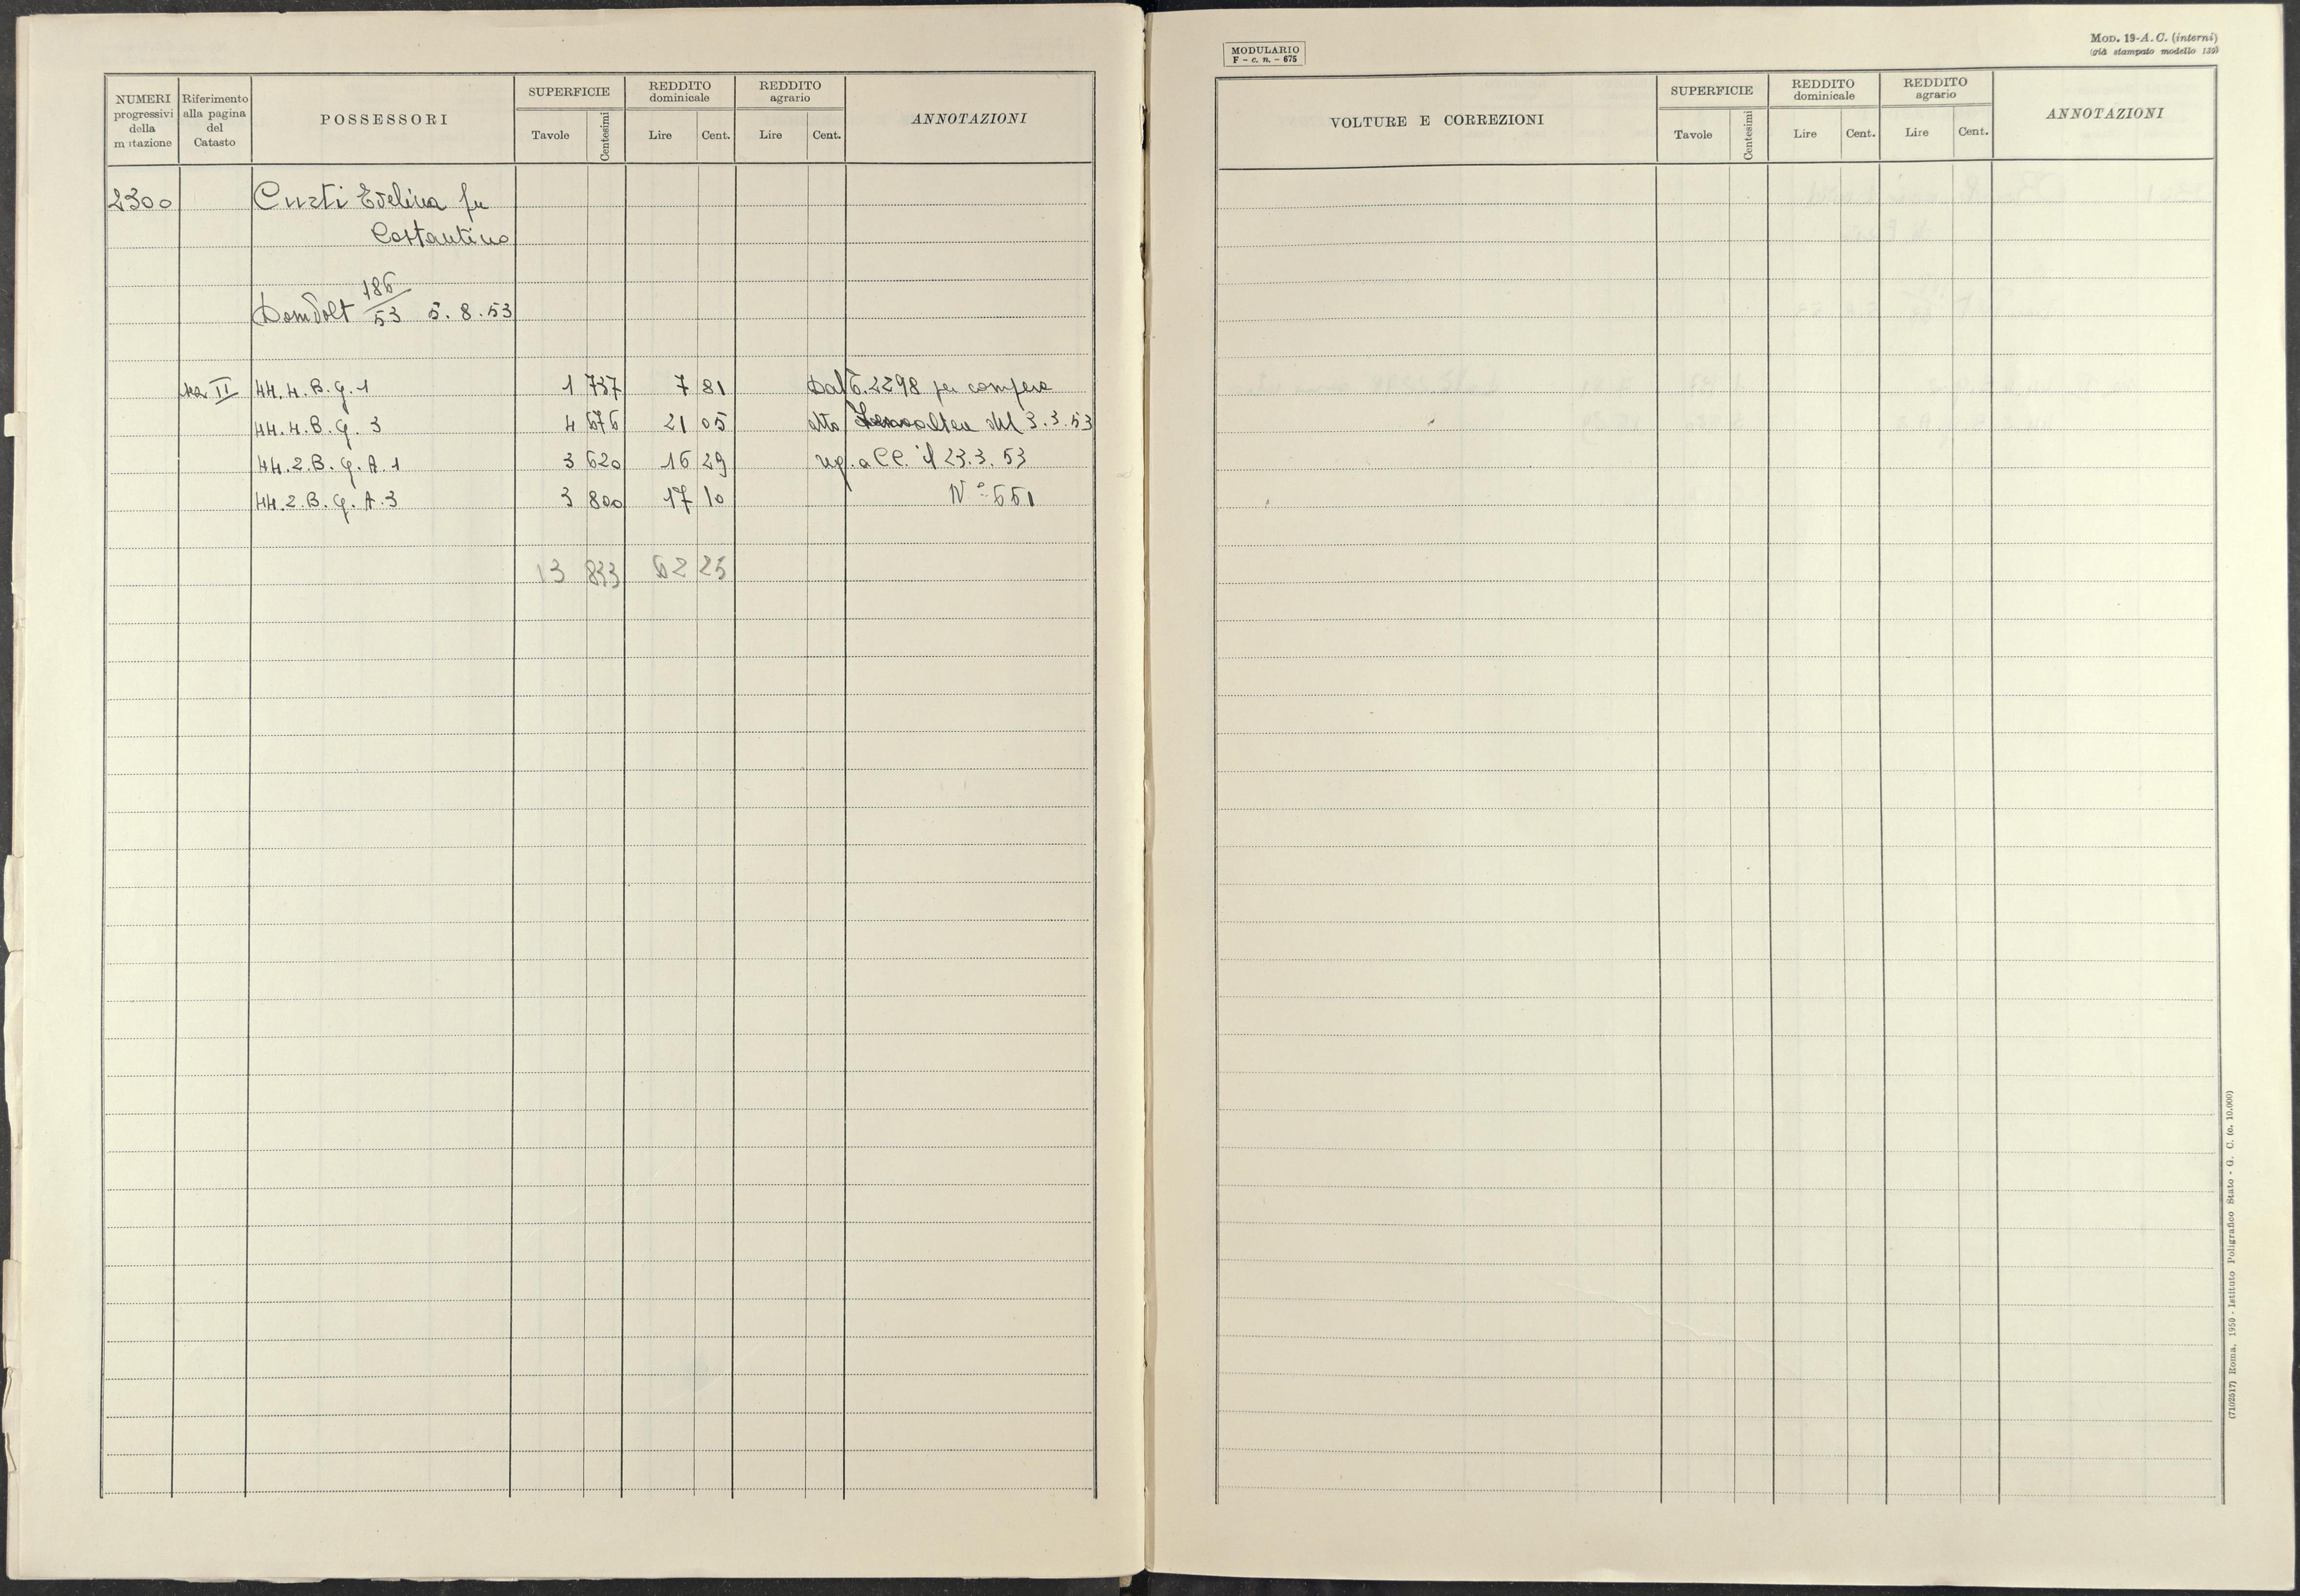 NUMERI progressivi della mutazione
Riferimento alla pagina del Catasto
POSSESSORI
SUPERFICIE
Tavole
Centesimi
REDDITO dominicale
Lire
Cent.
REDDITO agrario
Lire
Cent.
ANNOTAZIONI
2300 Curti Evelina fu
Costantino
186
53 5.8.53
II 44.4.B.g.1 1 737 7 81 Dal 6.2298 per compera
44.4.B.g.3 4 676 21 05 atto del 3.3.53
44.2.B.g.A.1 3 620 16 29 reg. a CC. il 23.3.53
44.2.B.g.A.3 3 800 17 10 N° 661
13 833 62 25
MODULARIO
F - c. n. - 675
MOD. 19-A. C. (interni)
(già stampato modello 139)
VOLTURE E CORREZIONI
SUPERFICIE
Tavole
Centesimi
REDDITO dominicale
Lire
Cent.
REDDITO agrario
Lire
Cent.
ANNOTAZIONI
(7102517) Roma, 1950 - Istituto Poligrafico Stato - G. C. (c. 10.000)